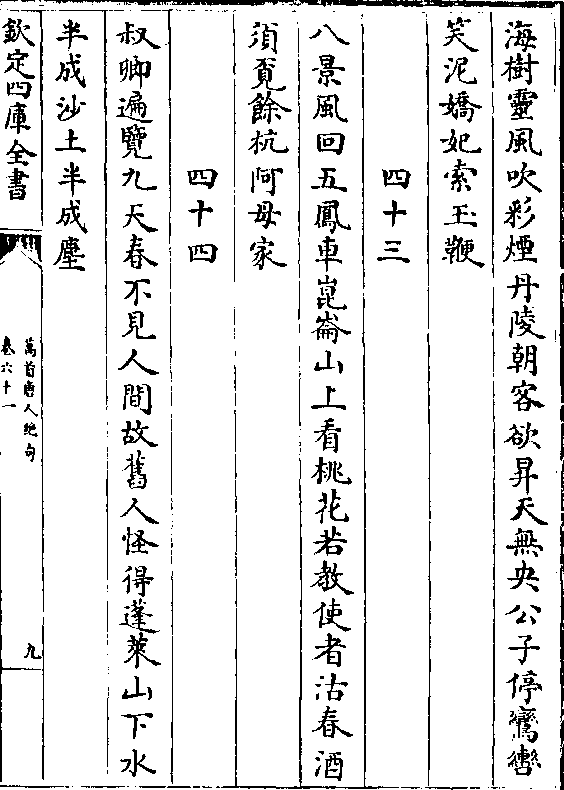 海樹靈風吹彩煙丹陵朝客欲昇天無央公子停鸞轡
笑泥嬌妃索玉鞭
四十三
八景風回五鳳車崑崙山上看桃花若教使者沽春酒
須覓餘杭阿母家
四十四
叔卿遍覽九天春不見人間故舊人怪得蓬萊山下水
半成沙土半成塵
欽定四庫全書
萬首唐人絶句
卷六十一
九